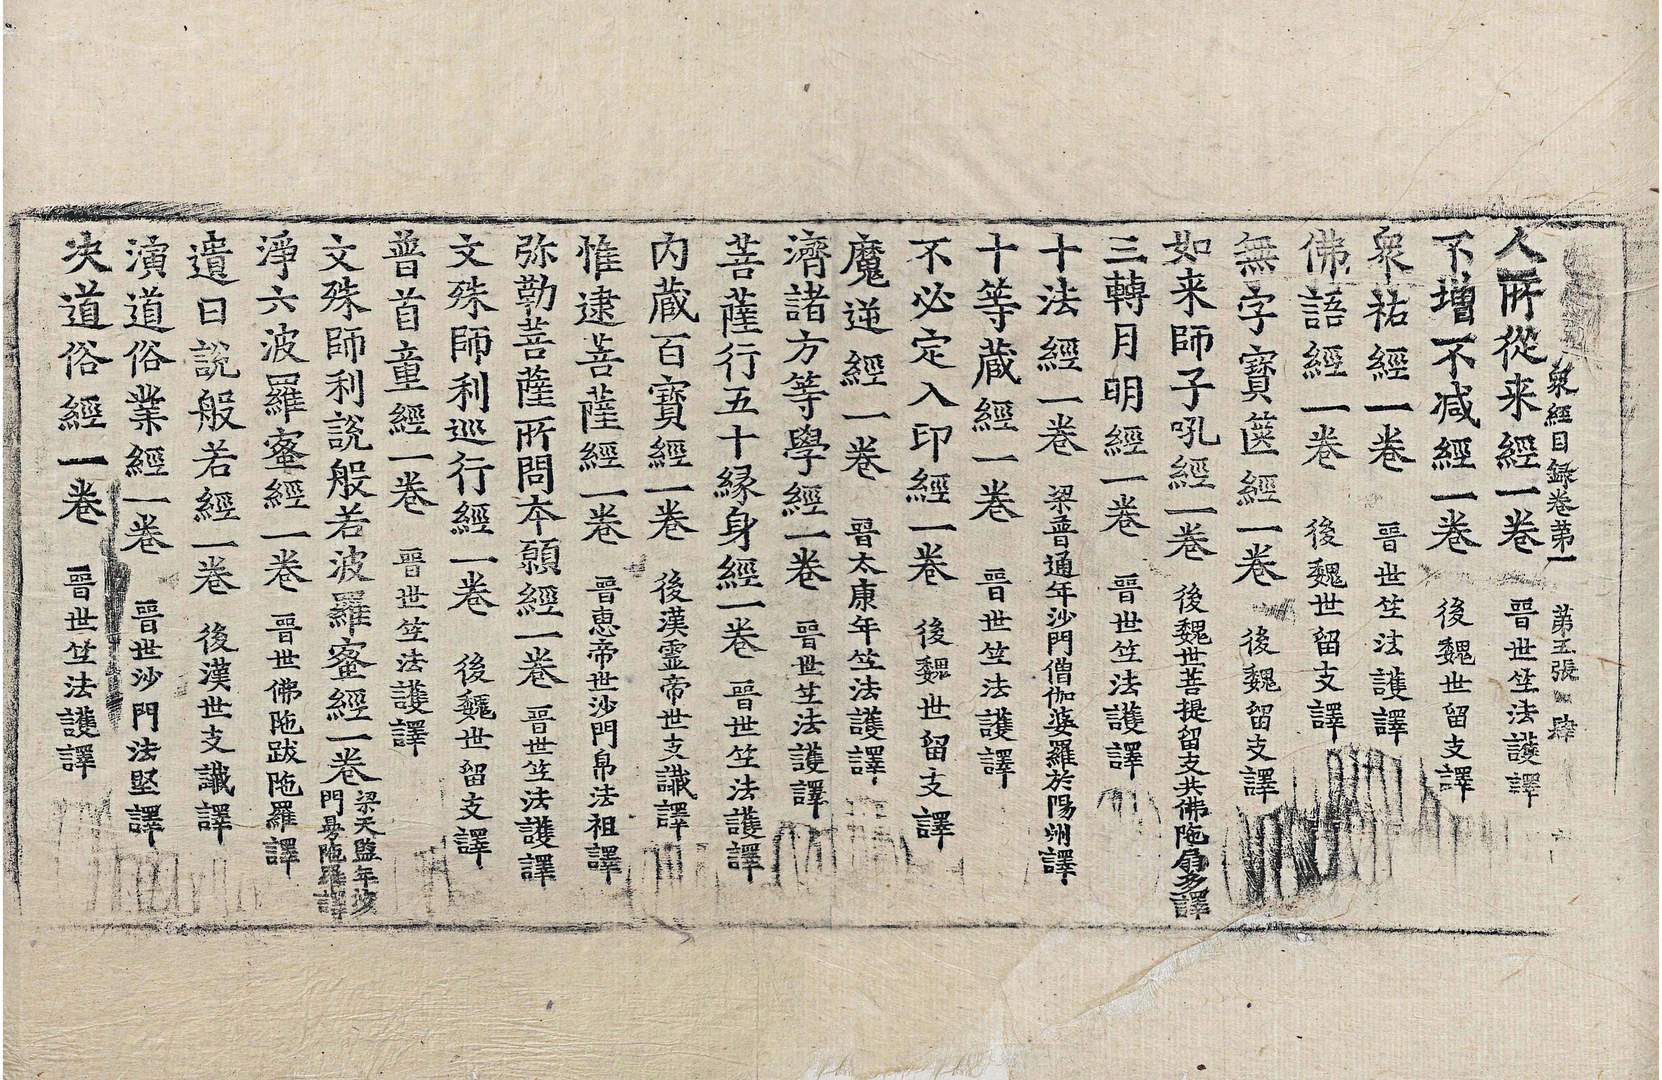 衆經目録卷苐一 苐五張 肆
人所從来經一卷 晉世竺法護譯
不增不减經一卷 後魏世留支譯
衆祐經一卷 晉世竺法護譯
佛語經一卷 後魏世留支譯
無字寶篋經一卷 後魏留支譯
如来師子吼經一卷 後魏世菩提留支共佛陁扇多譯
三轉月明經一卷 晉世竺法護譯
十法經一卷 梁普通年沙門僧伽婆羅於陽洲譯
十等藏經一卷 晉世竺法護譯
不必定入印經一卷 後魏世留支譯
魔逆經一卷 晉太康年竺法護譯
濟諸方等學經一卷 晉世竺法護譯
菩薩行五十縁身經一卷 晉世竺法護譯
内藏百寳經一卷 後漢靈帝世支讖譯
惟逮菩薩經一卷 晉惠帝世沙門帛法祖譯
弥勒菩薩所問本願經一卷 晉世竺法護譯
文殊師利巡行經一卷 後魏世留支譯
普首童經一卷 晉世竺法護譯
文殊師利説般若波羅蜜經一卷 梁天監年沙門曼陁羅譯
淨六波羅蜜經一卷 晉世佛陁跋陁羅譯
遺日説般若經一卷 後漢世支讖譯
演道俗業經一卷 晉世沙門法堅譯
决道俗經一卷 晉世竺法護譯